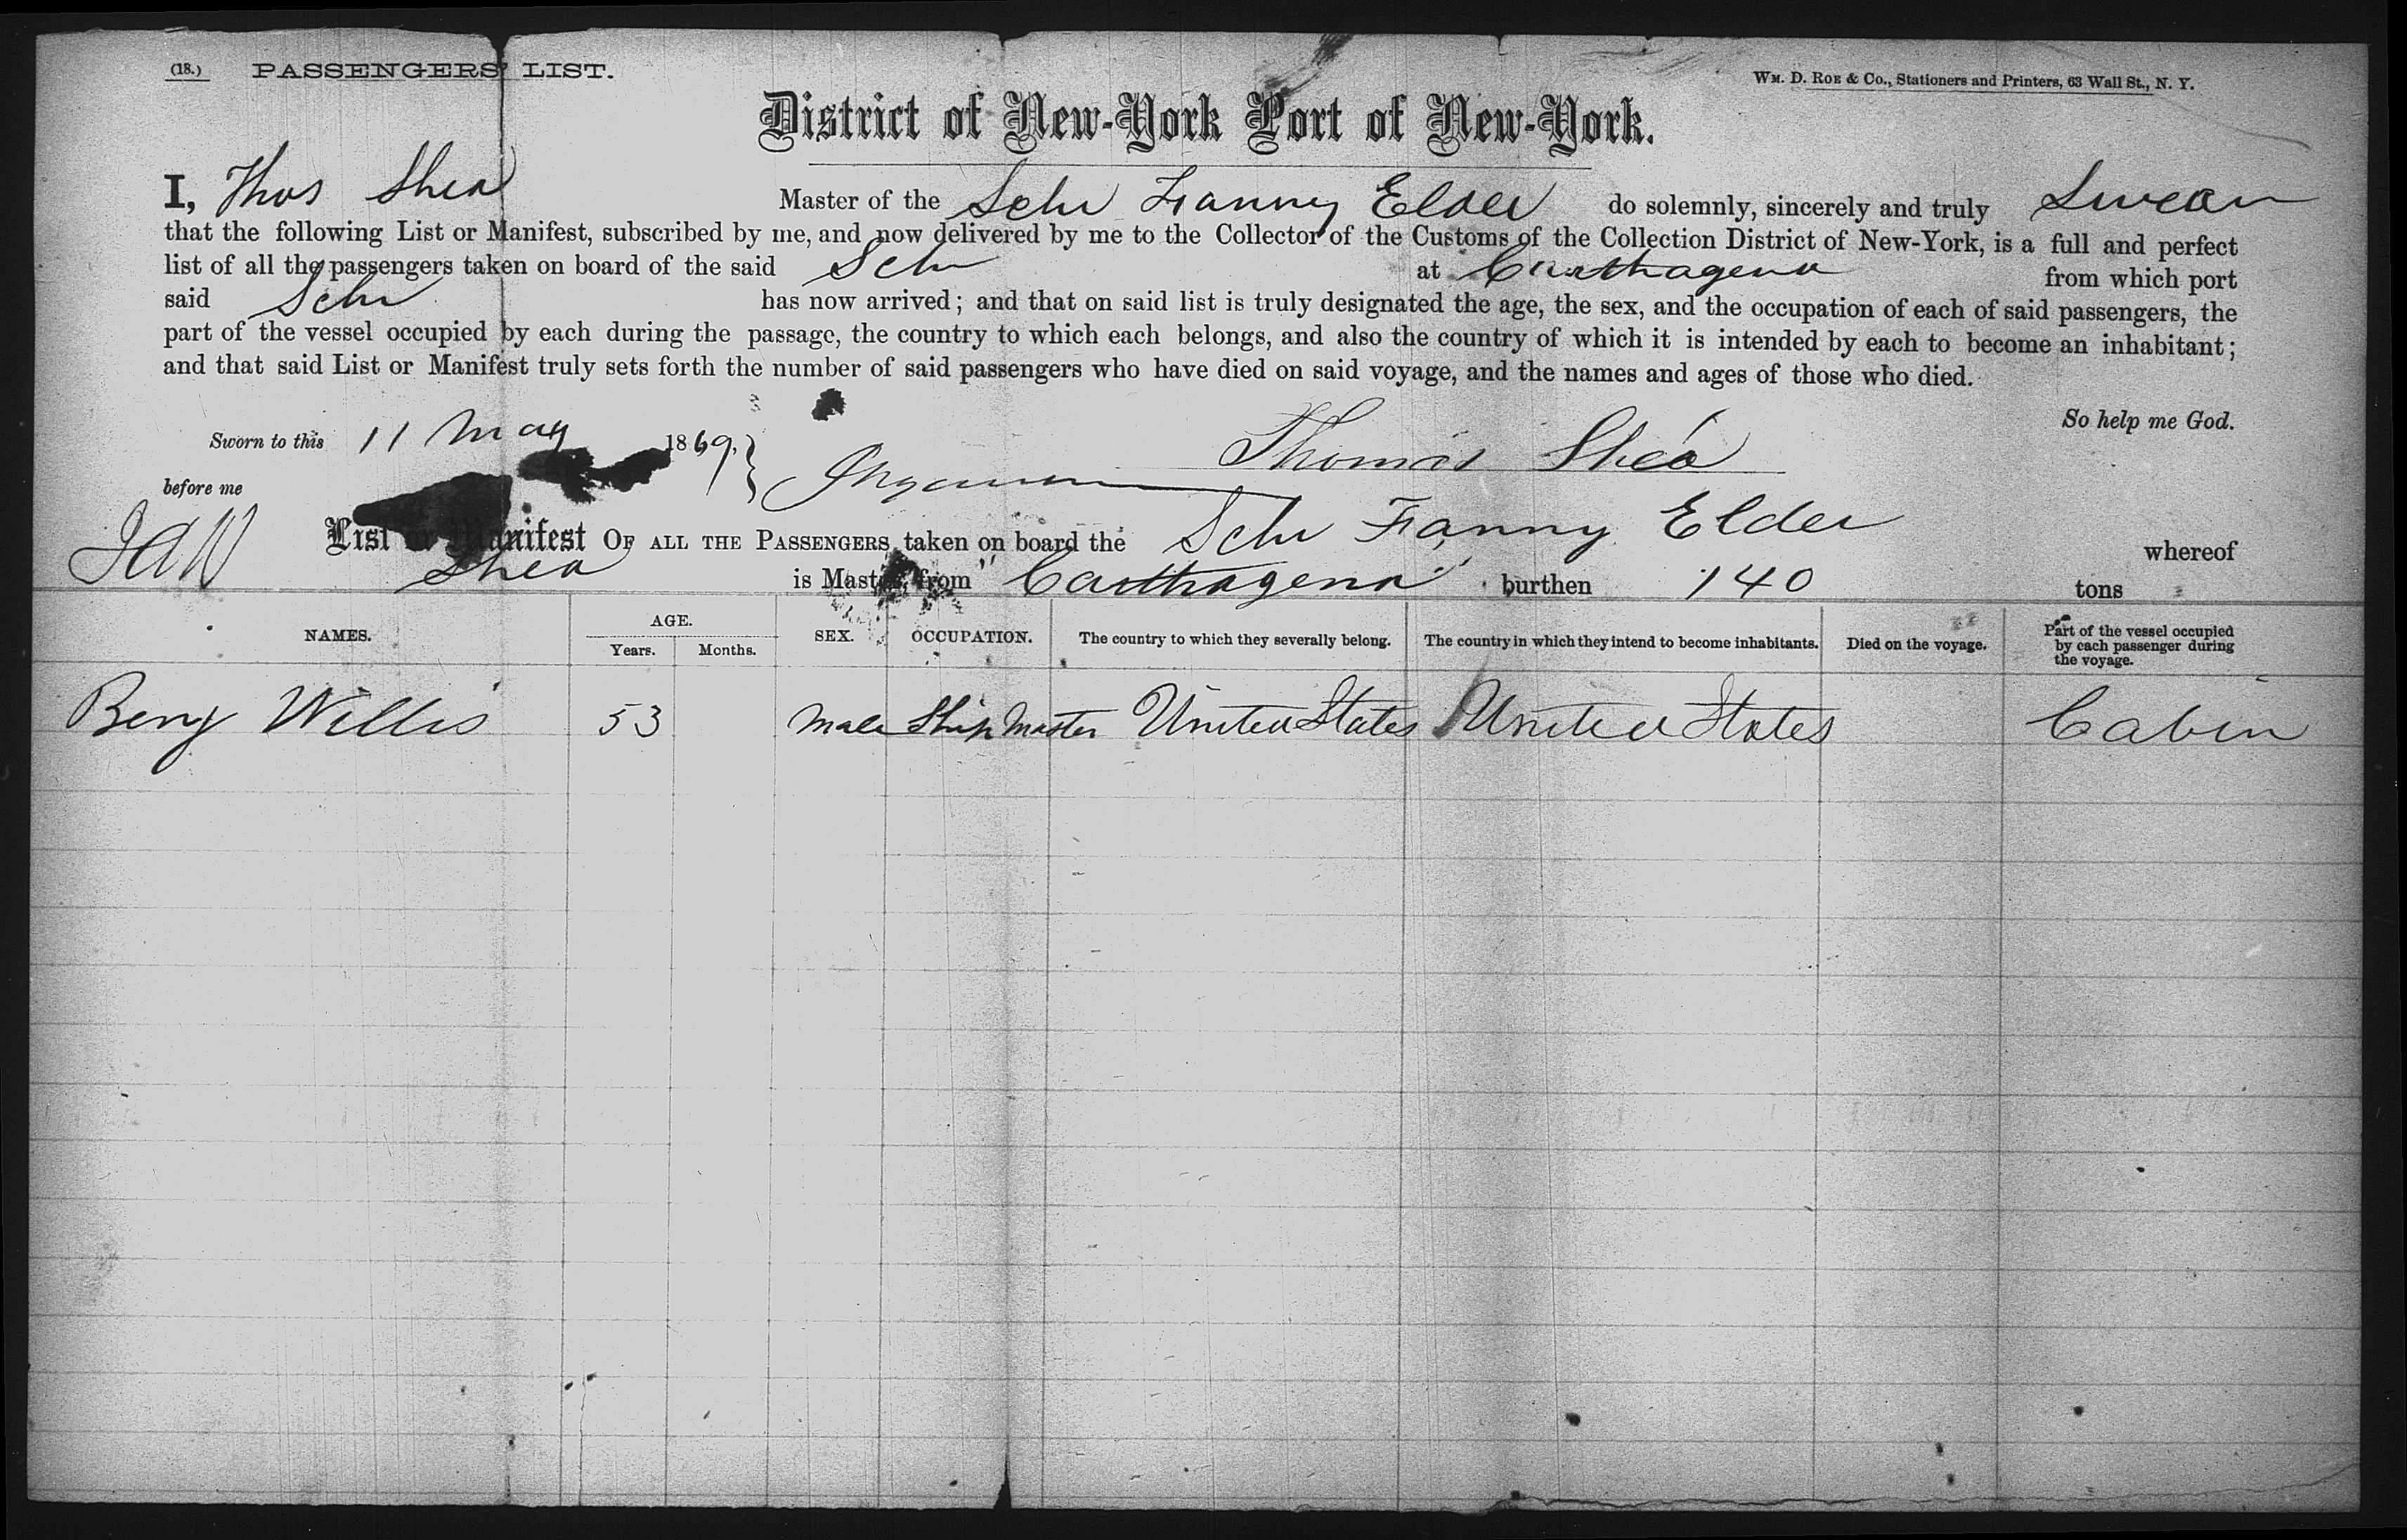 (18.) PASSENGERS' LIST.
WM. D. ROE & Co., Stationers and Printers, 63 Wall St., N. Y.
District of New-York Port of New-York.
I, Thos Shea Master of the Schr Fanny Elder do solemnly, sincerely and truly Swear
that the following List or Manifest, subscribed by me, and now delivered by me to the Collector of the Customs of the Collection District of New-York, is a full and perfect
list of all the passengers taken on board of the said Schr at Carthagena from which port
said Schr has now arrived; and that on said list is truly designated the age, the sex, and the occupation of each of said passengers, the
part of the vessel occupied by each during the passage, the country to which each belongs, and also the country of which it is intended by each to become an inhabitant;
and that said List or Manifest truly sets forth the number of said passengers who have died on said voyage, and the names and ages of those who died.
So help me God.
Sworn to this 11 May 1869. Thomas Shea
before me
JAW
List or Manifest OF ALL THE PASSENGERS taken on board the Schr Fanny Elder whereof
Shea is Master, from Carthagena burthen 140 tons
NAMES. AGE. Years. Months. SEX. OCCUPATION. The country to which they severally belong. The country in which they intend to become inhabitants. Died on the voyage. Part of the vessel occupied by each passenger during the voyage.
Benj Willis 53 Male Ship Master United States United States Cabin